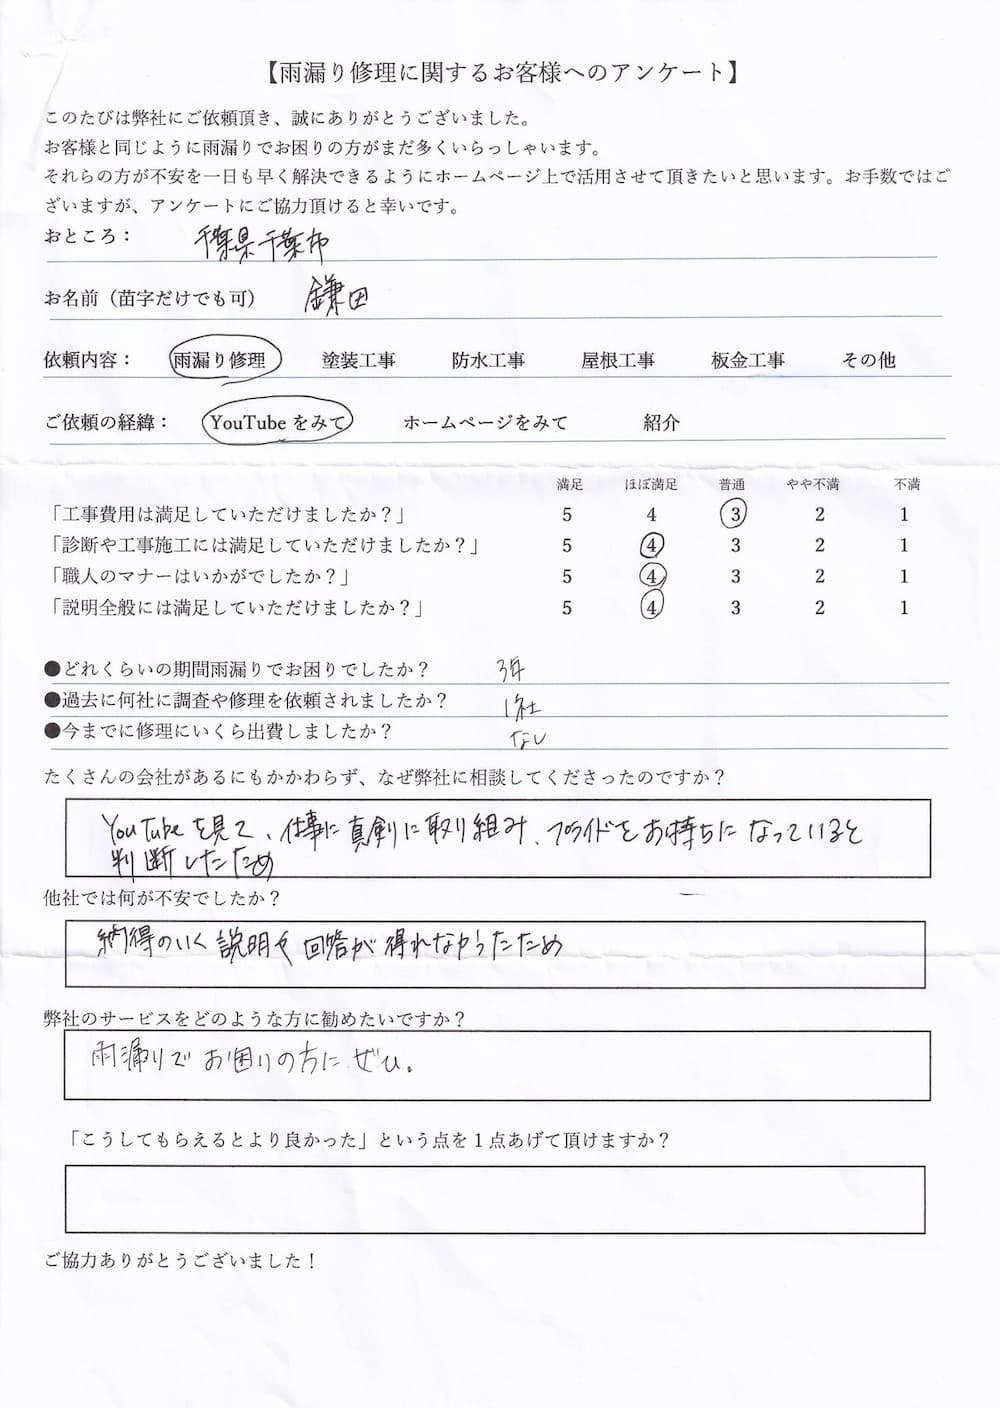 【雨漏り修理に関するお客様へのアンケート】
このたびは弊社にご依頼頂き、誠にありがとうございました。
お客様と同じように雨漏りでお困りの方がまだ多くいらっしゃいます。
それらの方が不安を一日も早く解決できるようにホームページ上で活用させて頂きたいと思います。お手数ではご
ざいますが、アンケートにご協力頂けると幸いです。
おところ： 千葉県千葉市
お名前（苗字だけでも可） 鎌田
依頼内容： 雨漏り修理 塗装工事 防水工事 屋根工事 板金工事 その他
ご依頼の経緯： YouTubeをみて ホームページをみて 紹介
満足 ほぼ満足 普通 やや不満 不満
「工事費用は満足していただけましたか？」 5 4 3 2 1
「診断や工事施工には満足していただけましたか？」 5 4 3 2 1
「職人のマナーはいかがでしたか？」 5 4 3 2 1
「説明全般には満足していただけましたか？」 5 4 3 2 1
●どれくらいの期間雨漏りでお困りでしたか？ 3年
●過去に何社に調査や修理を依頼されましたか？ 1社
●今までに修理にいくら出費しましたか？ なし
たくさんの会社があるにもかかわらず、なぜ弊社に相談してくださったのですか？
YouTubeを見て、仕事に真剣に取り組み、プライドをお持ちになっていると
判断したため
他社では何が不安でしたか？
納得のいく説明や回答が得れなかったため
弊社のサービスをどのような方に勧めたいですか？
雨漏りでお困りの方にぜひ。
「こうしてもらえるとより良かった」という点を1点あげて頂けますか？
ご協力ありがとうございました！